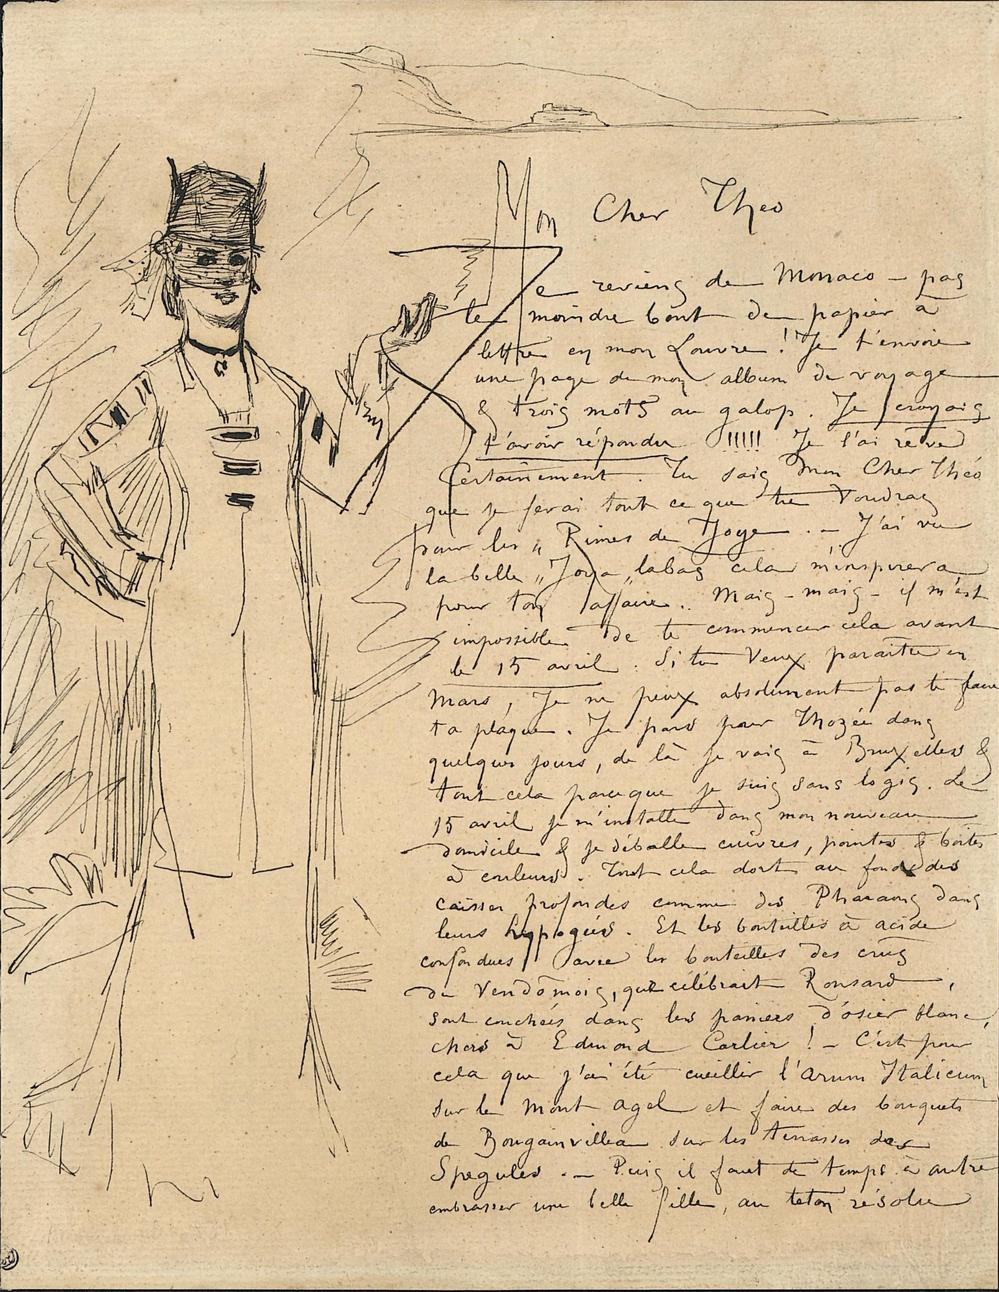 Mon Cher Théo
Je reviens de Monaco – pas
le moindre bout de papier à
lettre en mon Louvre ! Je t'envoie
une page de mon album de voyage
& trois mots au galop Je croyais
t'avoir répondu !!!!! Je l'ai rêvé
Certainement. Tu sais mon Cher Théo
que je ferai tout ce que tu voudras
pour les „ Rimes de Joye . – J'ai vu
la belle „ Joya „ labas cela m'inspirera
pour ton affaire.. Mais – mais – il m'est
impossible de te commencer cela avant
le 15 avril. Si tu veux paraître en
Mars, Je ne peux absolument pas te faire
ta plaque. Je pars pour Thozée dans
quelques jours, de là je vais à Bruxelles &
tout cela parceque je suis sans logis. Le
15 avril je m'installe dans mon nouveau
domicile & je déballe cuivres, pointes & boites
à couleurs. Tout cela dort au fond des
caisses profondes comme des Pharaons dans
leurs hypogées. Et les bouteilles à acide
confondues avec les bouteilles des crus
du Vendômois, que célébrait Ronsard,
sont couchées dans les paniers d'osier blanc,
chers à Edmond Carlier ! – C'est pour
cela que j'ai été cueillir l'arum Italicum
sur le Mont Agel et faire des bouquets
de Bougainvillea sur les terrasses des
Spegules. – Puis il faut de temps à autre
embrasser une belle fille, au teton résolu